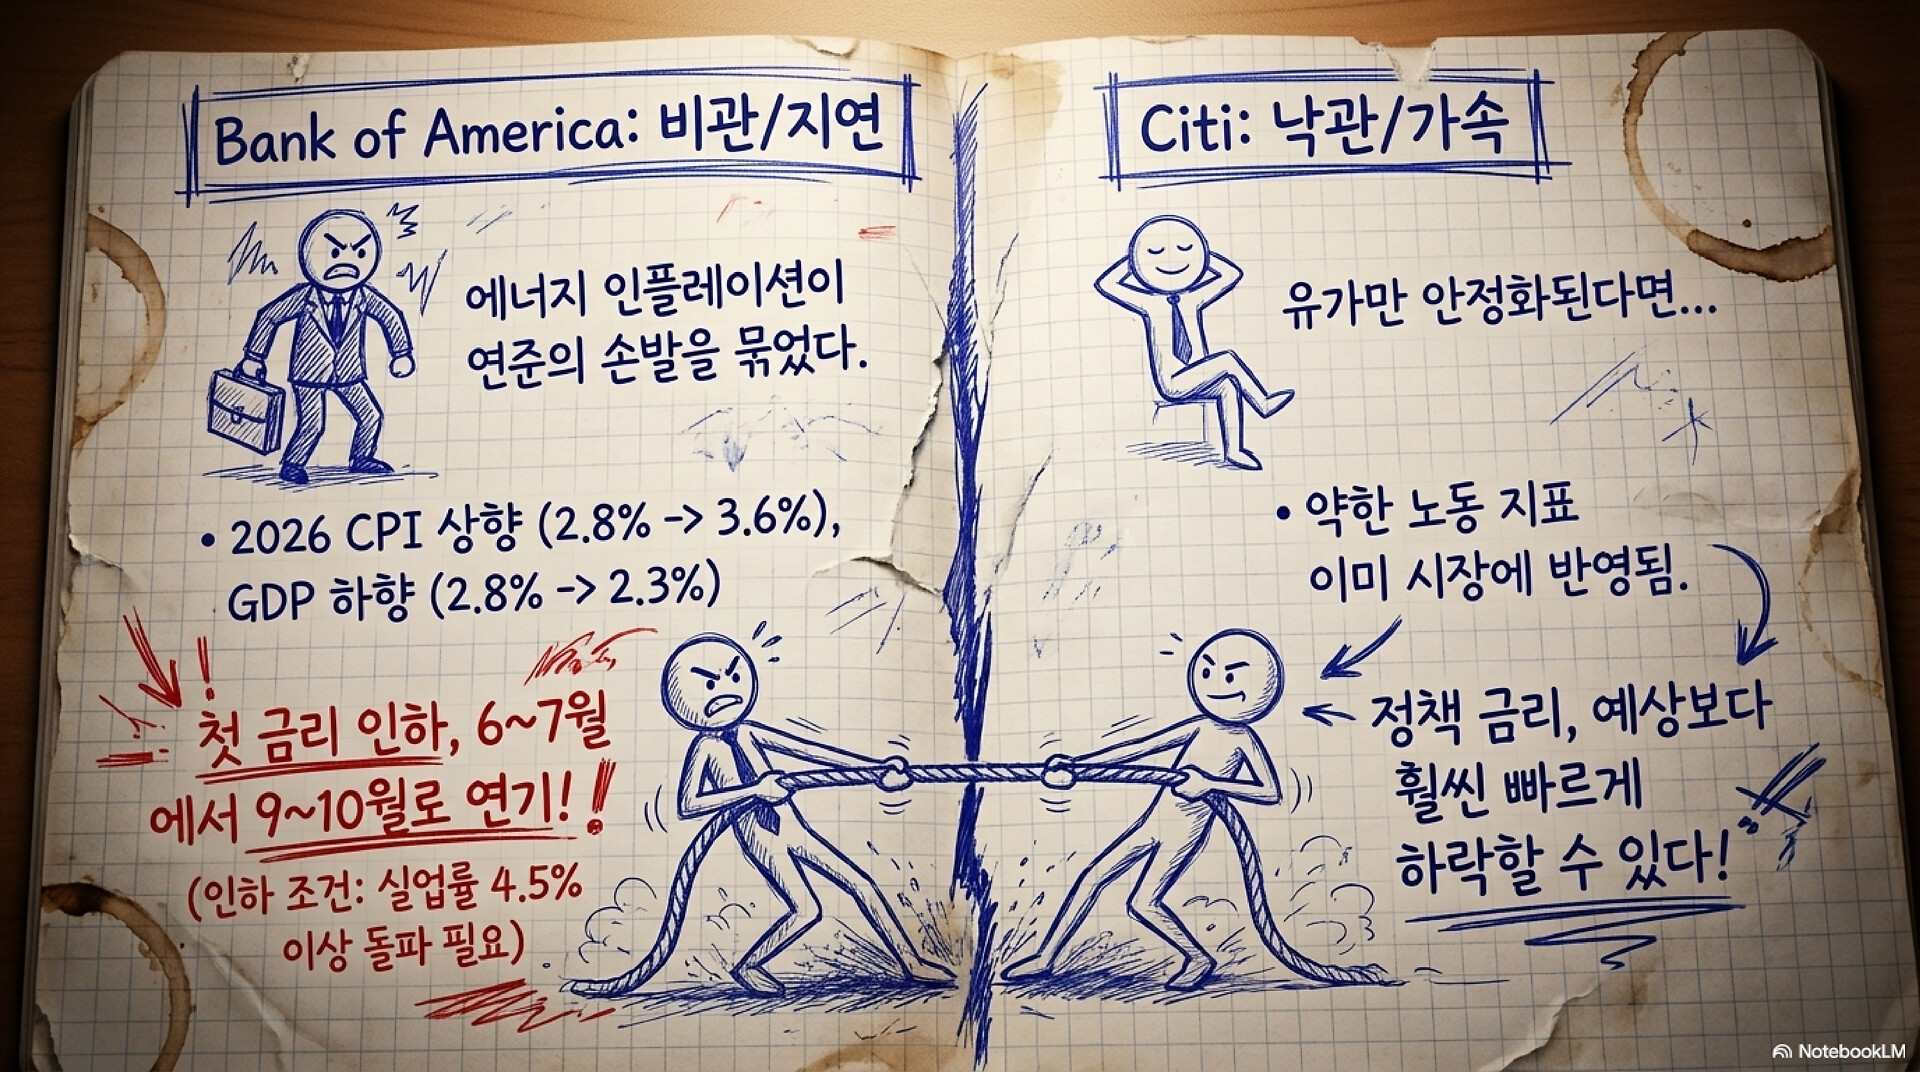 Bank of America: 비관/지연
에너지 인플레이션이
연준의 손발을 묶었다.
• 2026 CPI 상향 (2.8% -> 3.6%),
GDP 하향 (2.8% -> 2.3%)
첫 금리 인하, 6~7월
에서 9~10월로 연기!
(인하 조건: 실업률 4.5%
이상 돌파 필요)
Citi: 낙관/가속
유가만 안정화된다면...
• 약한 노동 지표
이미 시장에 반영됨.
정책 금리, 예상보다
훨씬 빠르게
하락할 수 있다!
NotebookLM